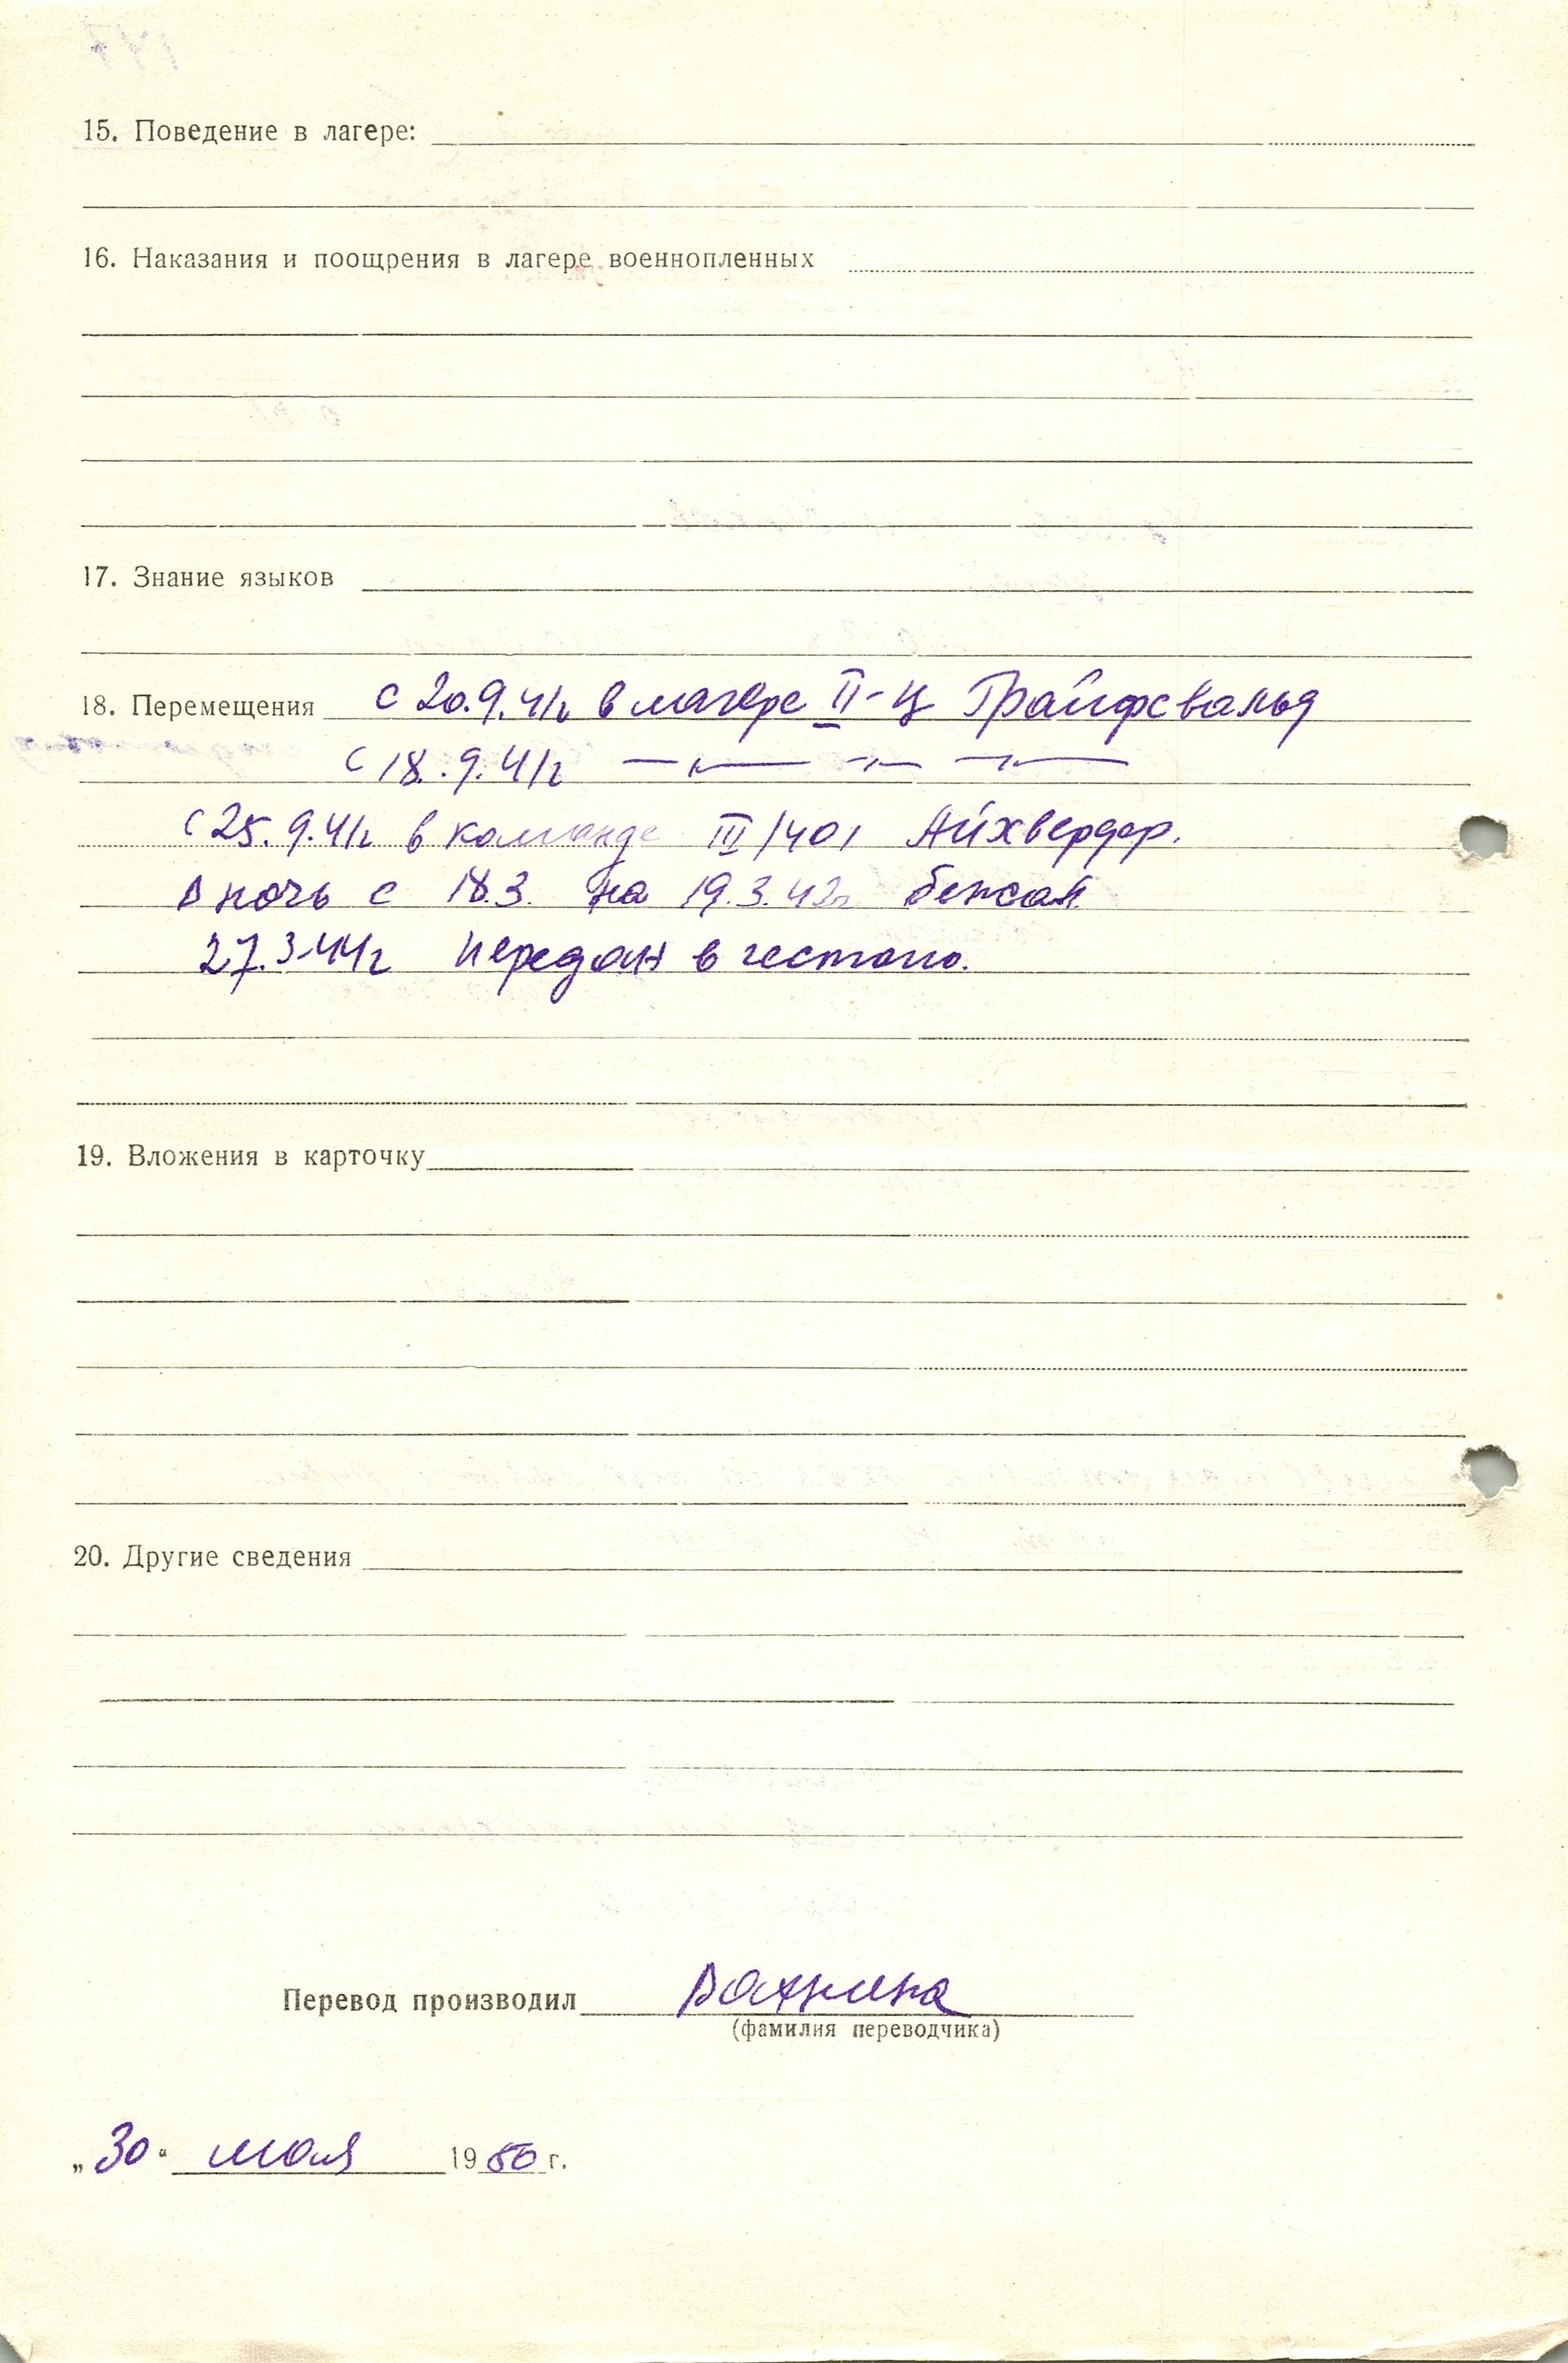 15. Поведение в лагере:
16. Наказания и поощрения в лагере военнопленных
17. Знание языков
18. Перемещения с 20.9.41г в лагере II-Ц Грайфсвальд
с 18.9.41г —"— —"— —"—
с 25.9.41г в команде III/401 Айхвердер.
В ночь с 18.3. на 19.3.42г бежал.
27.3.44г передан в гестапо.
19. Вложения в карточку
20. Другие сведения
Перевод производил Вахнина
(фамилия переводчика)
„30" мая 1950 г.